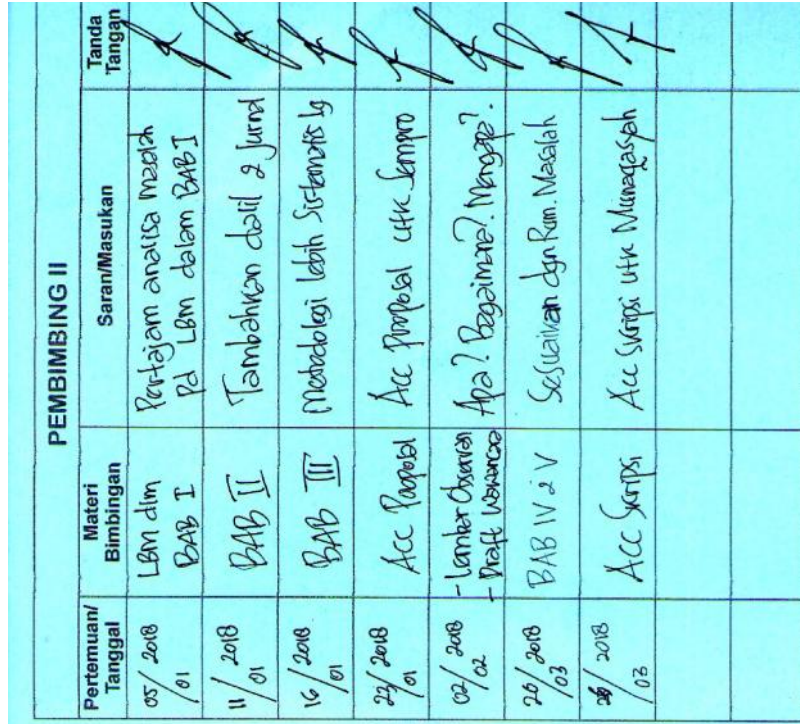 PEMBIMBING II
Pertemuan/
Tanggal
Materi
Bimbingan
Saran/Masukan
Tanda
Tangan
05/01 2018
LBM dlm
BAB I
Pertajam analisa masalah
Pd LBM dalam BAB I
11/01 2018
BAB II
Tambahkan dalil 2 Jurnal
16/01 2018
BAB III
Metodologi lebih Sistematis lg
23/01 2018
Acc Proposal
Acc Proposal utk Sempro
02/02 2018
- Lembar Observasi
- Draft Wawancara
Apa? Bagaimana? Mengapa?.
20/03 2018
BAB IV 2 V
Sesuaikan dgn Rum. Masalah
/03 2018
Acc Skripsi
Acc Skripsi utk Munaqasyah